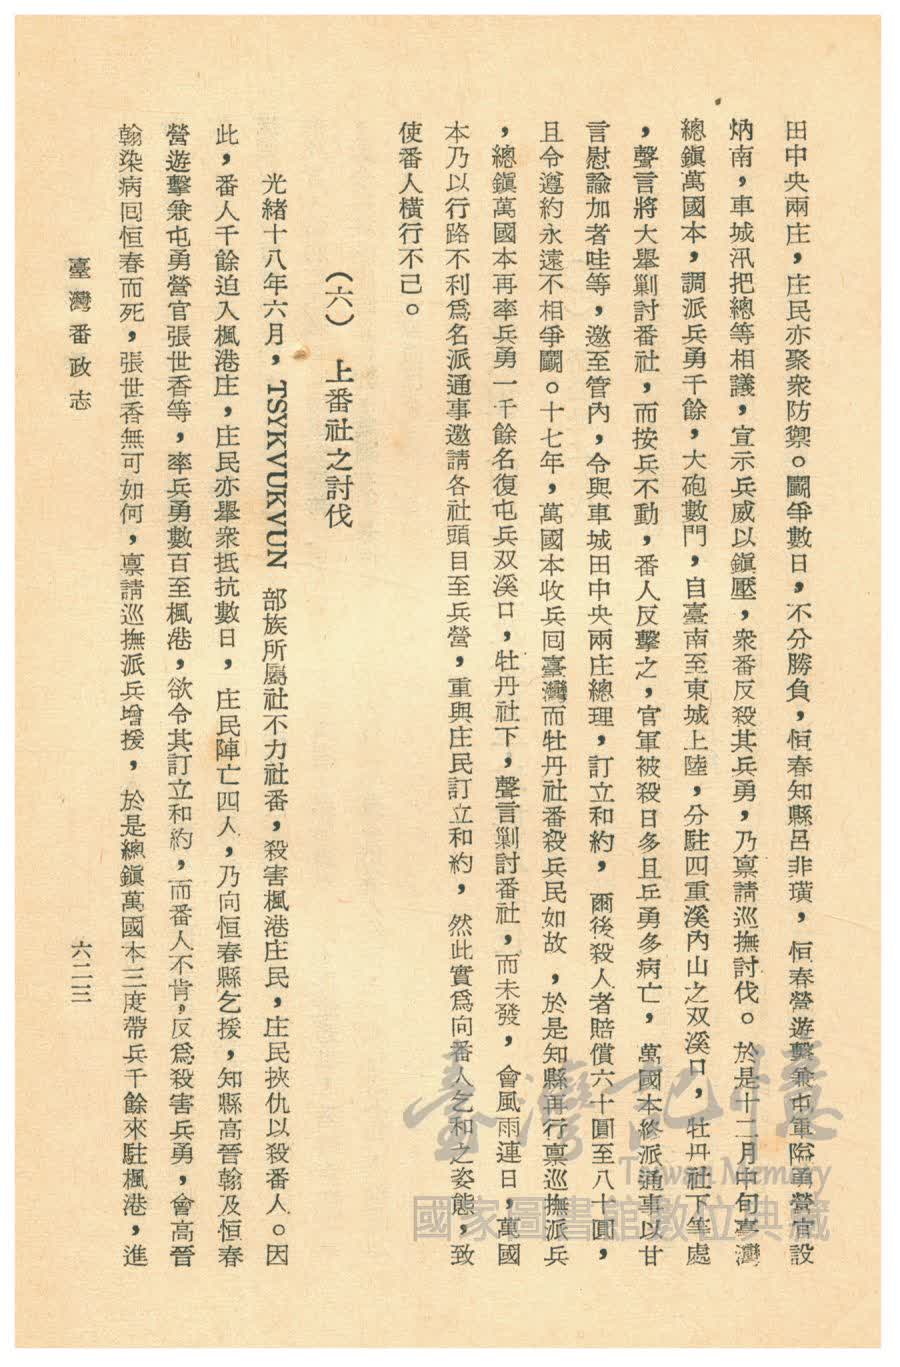 田中央兩庄，庄民亦聚衆防禦。鬬爭數日，不分勝負，恒春知縣呂非璜，恒春營遊擊兼中軍隘勇營官設
炳南，車城汛把總等相議，宣示兵威以鎭壓，衆番反殺其兵勇，乃禀請巡撫討伐。於是十二月中旬臺灣
總鎭萬國本，調派兵勇千餘，大砲數門，自臺南至東城上陸，分駐四重溪內山之双溪口，牡丹社下等處
，聲言將大舉剿討番社，而按兵不動，番人反擊之，官軍被殺日多且兵勇多病亡，萬國本終派通事以甘
言慰諭加者哇等，邀至管內，令與車城田中央兩庄總理，訂立和約，爾後殺人者賠償六十圓至八十圓，
且令遵約永遠不相爭鬬。十七年，萬國本收兵囘臺灣而牡丹社番殺兵民如故，於是知縣再行禀巡撫派兵
，總鎭萬國本再率兵勇一千餘名復屯兵双溪口，牡丹社下，聲言剿討番社，而未發，會風雨連日，萬國
本乃以行路不利爲名派通事邀請各社頭目至兵營，重與庄民訂立和約，然此實爲向番人乞和之姿態，致
使番人橫行不已。
（六）　上番社之討伐
光緒十八年六月，TSYKVUKVUN 部族所屬社不力社番，殺害楓港庄民，庄民挾仇以殺番人。因
此，番人千餘迫入楓港庄，庄民亦舉衆抵抗數日，庄民陣亡四人，乃向恒春縣乞援，知縣高晉翰及恒春
營遊擊兼屯勇營官張世香等，率兵勇數百至楓港，欲令其訂立和約，而番人不肯，反爲殺害兵勇，會高晉
翰染病囘恒春而死，張世香無可如何，禀請巡撫派兵增援，於是總鎭萬國本三度帶兵千餘來駐楓港，進
臺灣番政志
六二三
臺灣記憶
Taiwan Memory
國家圖書館數位典藏